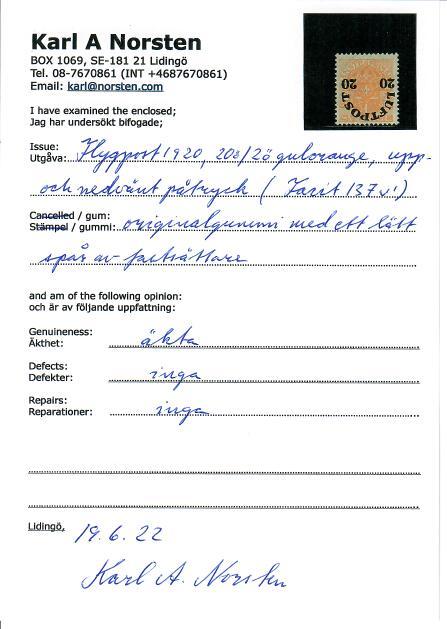 Karl A Norsten
BOX 1069, SE-181 21 Lidingö
Tel. 08-7670861 (INT +4687670861)
Email: karl@norsten.com
20 20
LUFTPOST
I have examined the enclosed;
Jag har undersökt bifogade;
Issue:
Utgåva: Flygpost 1920, 20ö/2ö gulorange, upp-
och nedvänt påtryck (Facit 137v¹)
Cancelled / gum:
Stämpel / gummi: originalgummi med ett lätt
spår av fastsättare
and am of the following opinion:
och är av följande uppfattning:
Genuineness:
Äkthet: äkta
Defects:
Defekter: inga
Repairs:
Reparationer: inga
Lidingö, 19.6.22
Karl A. Norsten